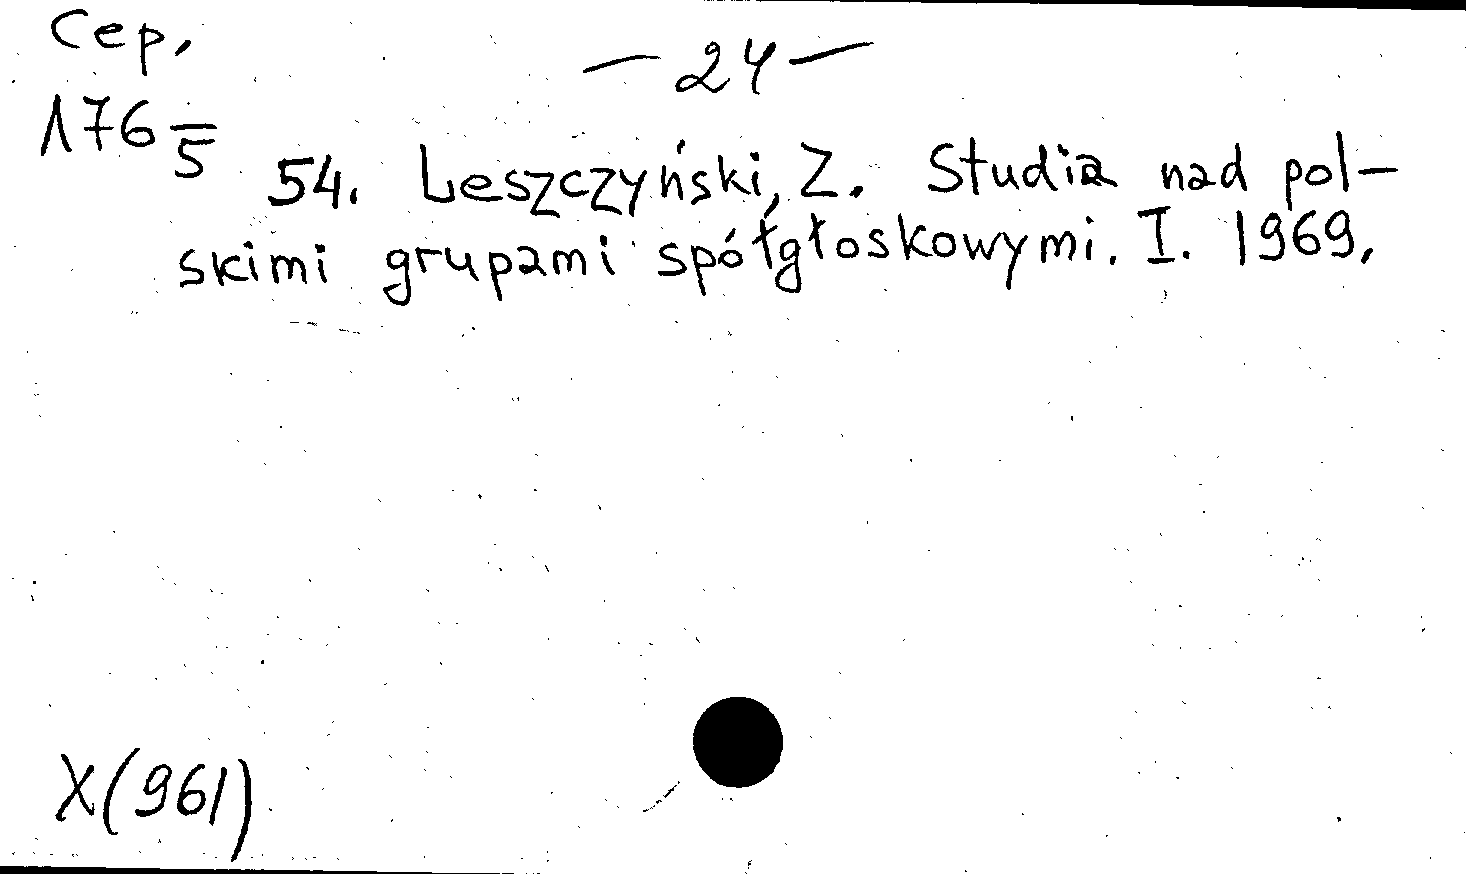 Сер.
— 24 —
176/5
54. Leszczyński, Z. Studia nad pol-
skimi grupami spółgłoskowymi. I. 1969.
X(961)